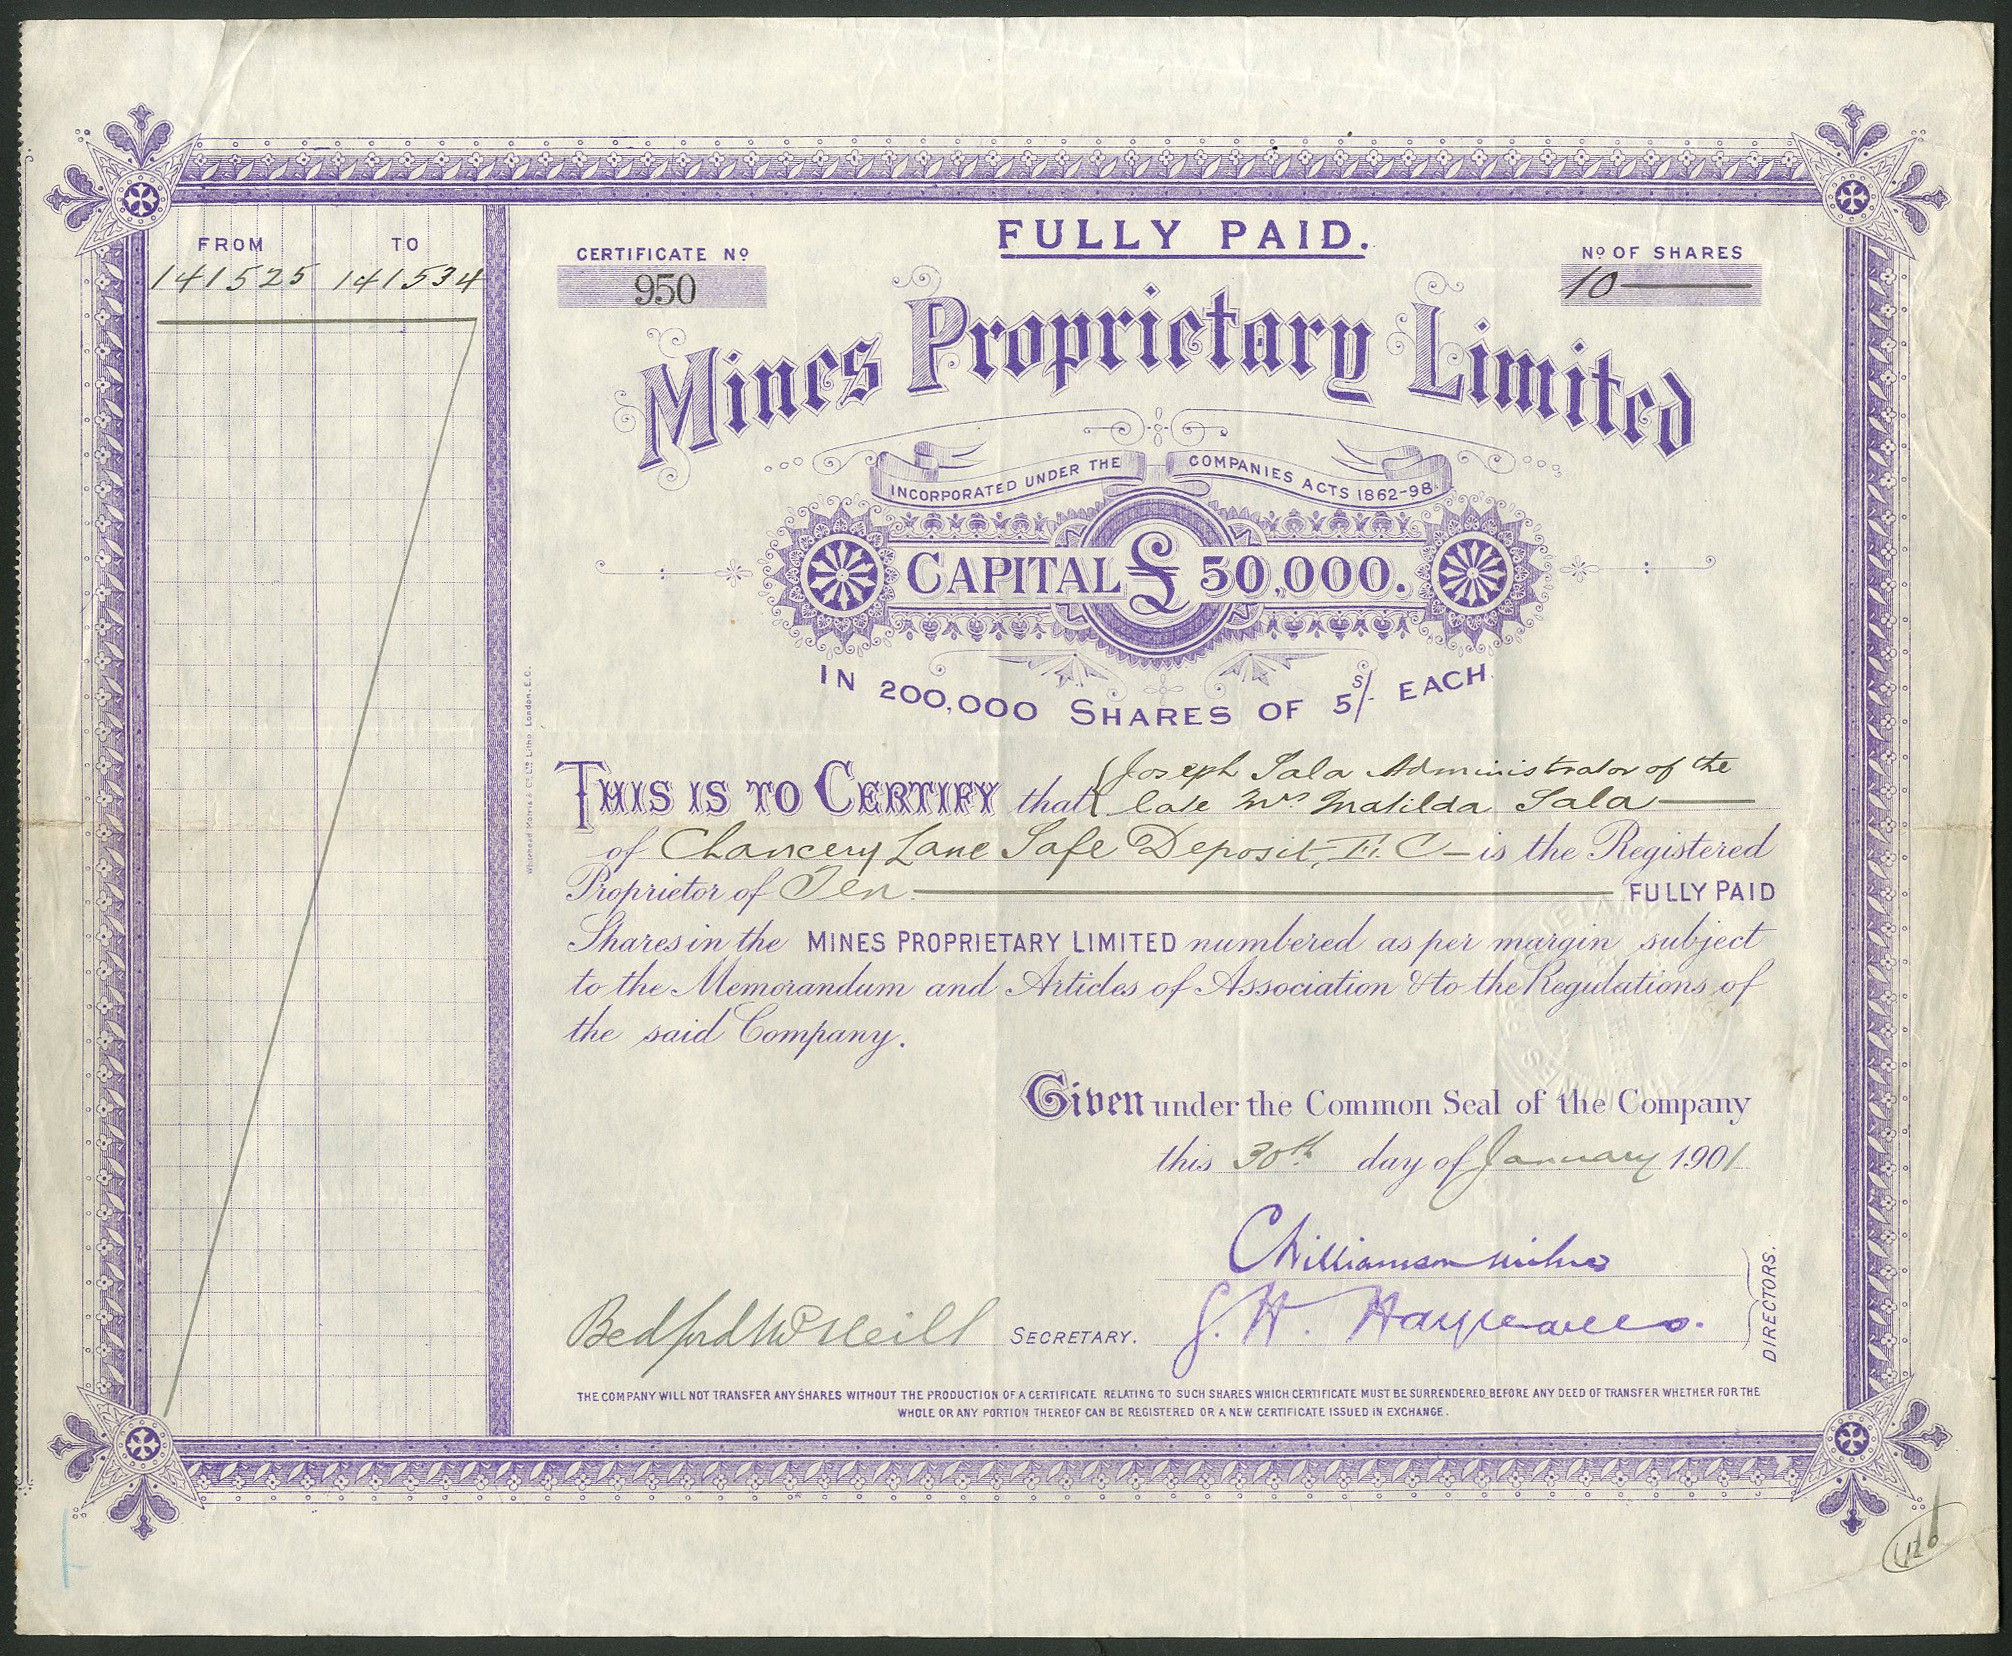 FROM TO
141525 141534
FULLY PAID.
CERTIFICATE Nº
950
Nº OF SHARES
10
Mines Proprietary Limited
INCORPORATED UNDER THE COMPANIES ACTS 1862-98.
CAPITAL £ 50,000.
IN 200,000 SHARES OF 5s/- EACH
Whitehead Morris & Co. Ltd. Litho. London, E.C.
THIS IS TO CERTIFY that Joseph Sala Administrator of the
late Mrs Matilda Sala
of Chancery Lane Safe Deposit, E. C is the Registered
Proprietor of Ten FULLY PAID
Shares in the MINES PROPRIETARY LIMITED numbered as per margin subject
to the Memorandum and Articles of Association & to the Regulations of
the said Company.
Given under the Common Seal of the Company
this 30th day of January 1901
C Williamson Milne
Bedford McNeill SECRETARY. J. H.
DIRECTORS.
THE COMPANY WILL NOT TRANSFER ANY SHARES WITHOUT THE PRODUCTION OF A CERTIFICATE RELATING TO SUCH SHARES WHICH CERTIFICATE MUST BE SURRENDERED BEFORE ANY DEED OF TRANSFER WHETHER FOR THE
WHOLE OR ANY PORTION THEREOF CAN BE REGISTERED OR A NEW CERTIFICATE ISSUED IN EXCHANGE.